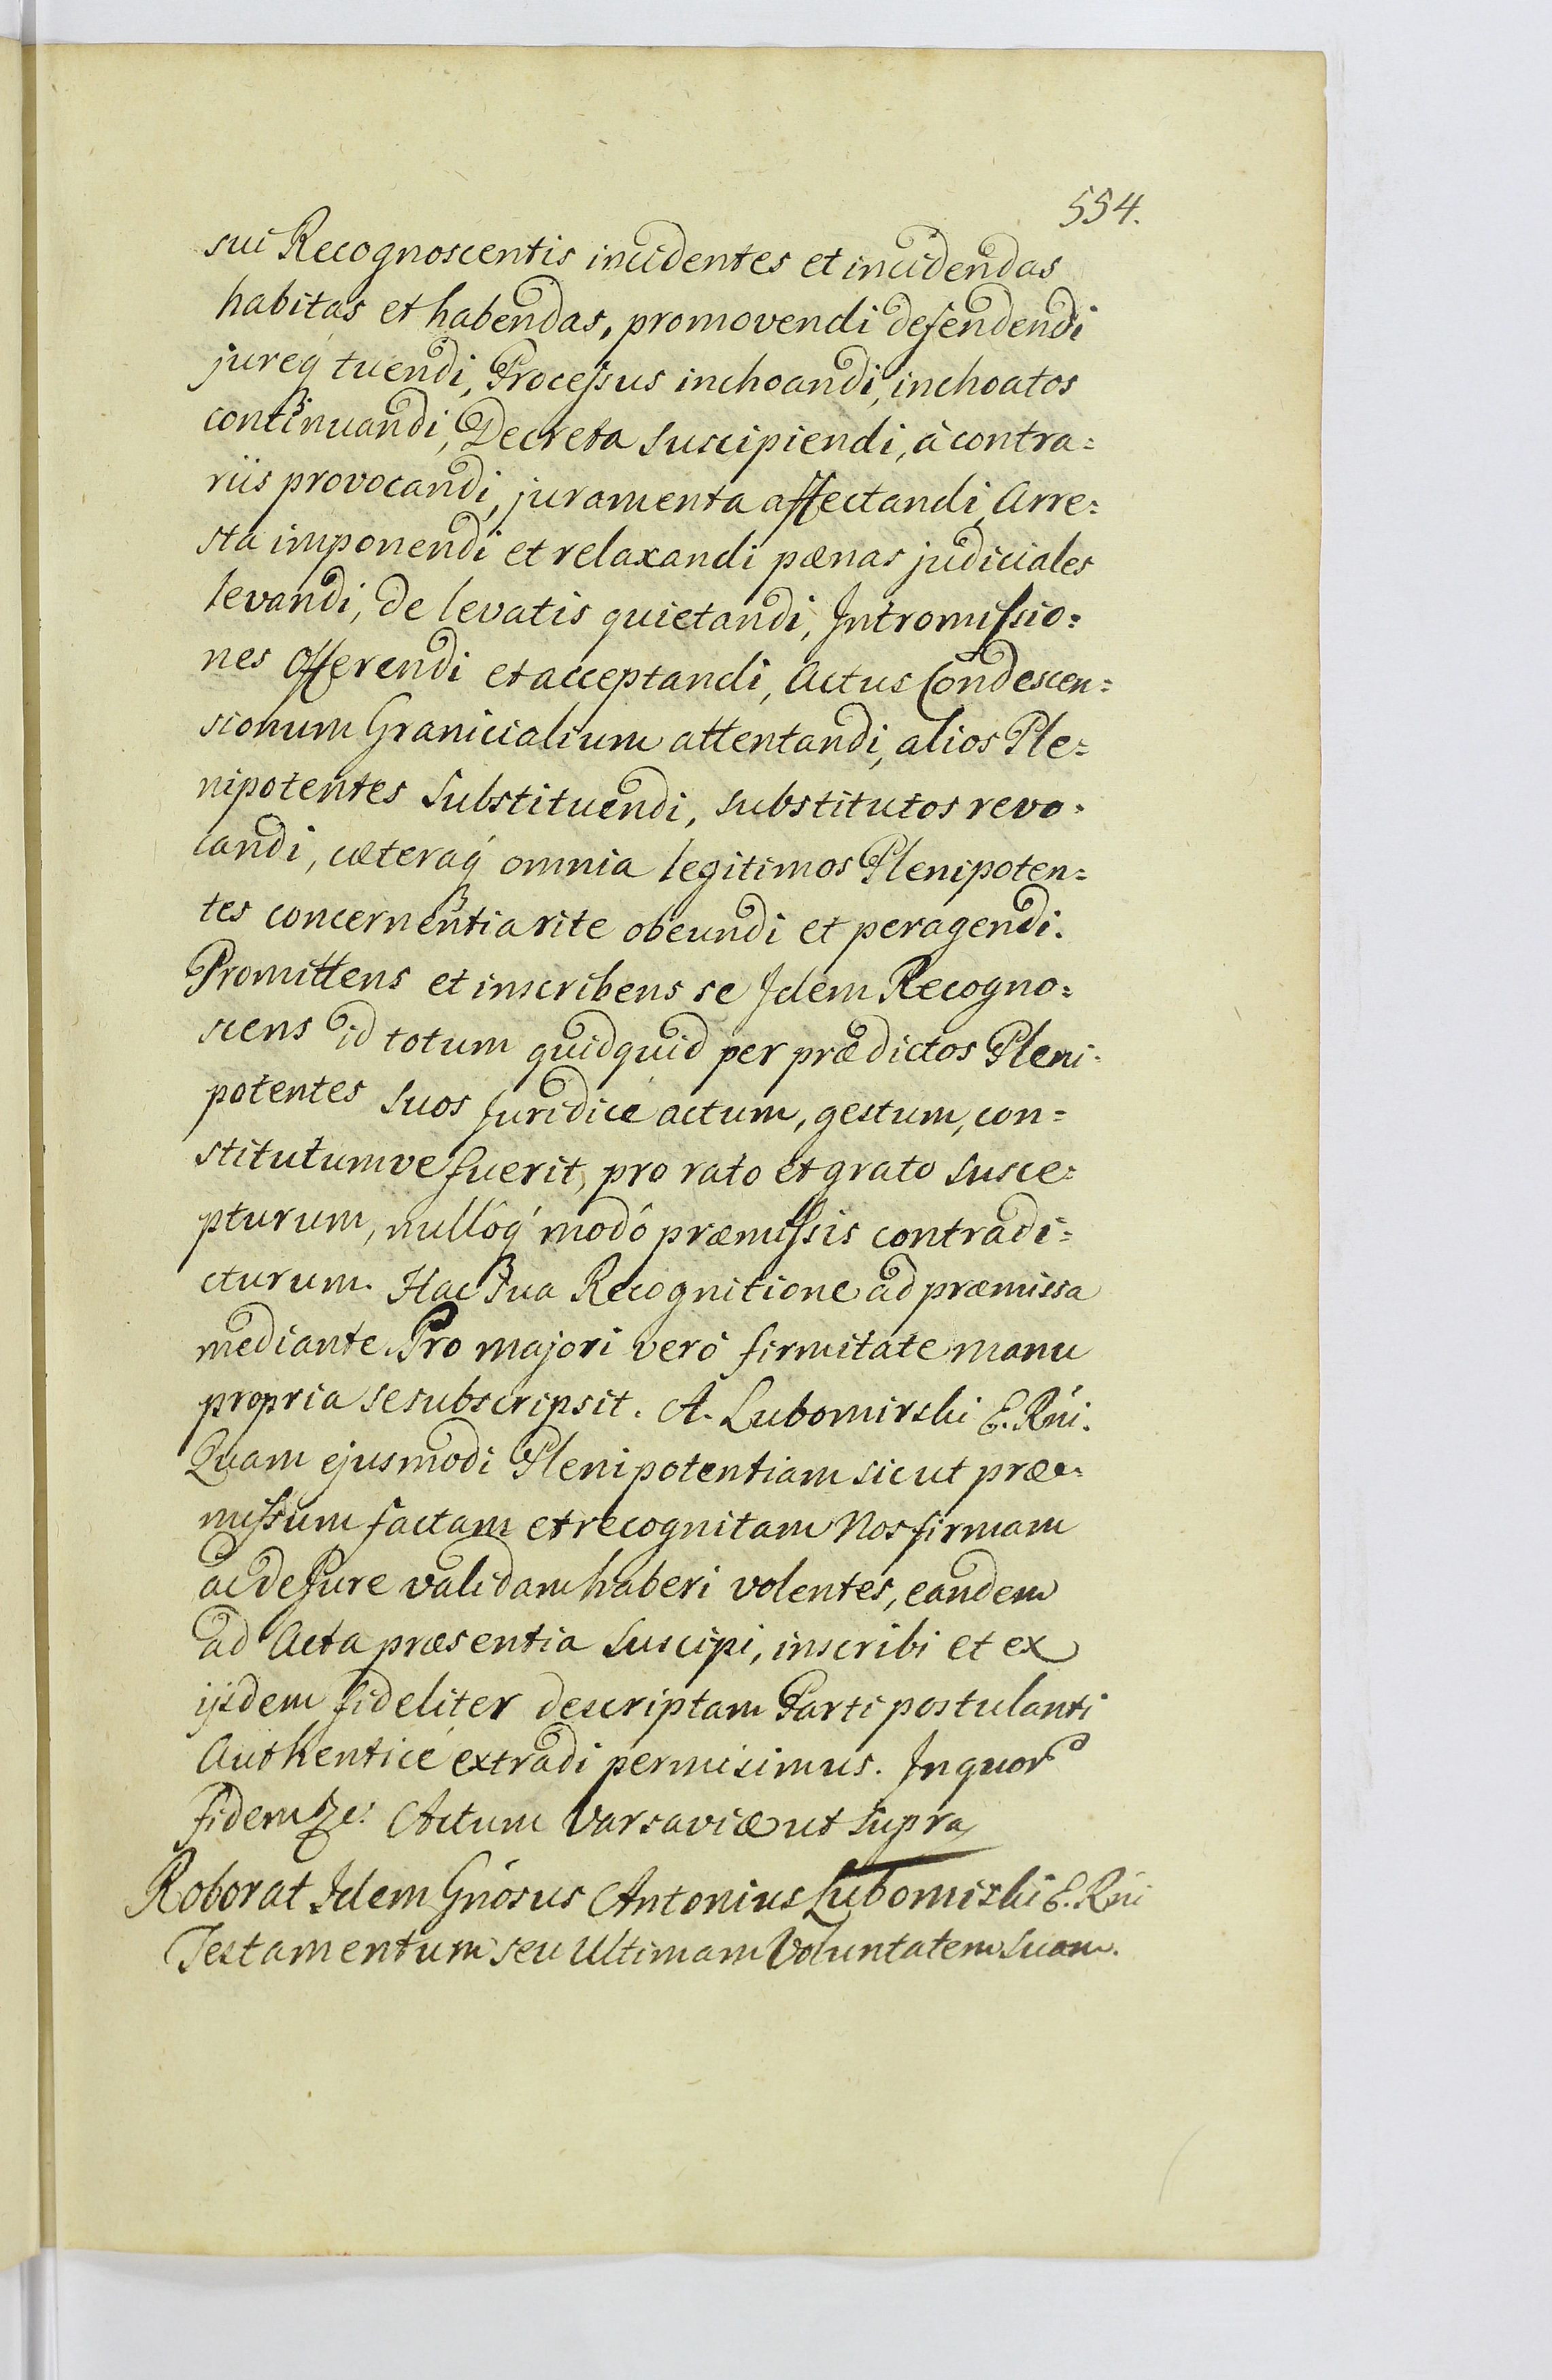 554.
sui Recognoscentis incidentes et incidendas
habitas et habendas, promovendi defendendi
jureq́ tuendi, Processus inchoandi, inchoatos
continuandi, Decreta suscipiendi, à contra=
riis provocandi, juramenta affectandi, Arre=
sta imponendi et relaxandi pœnas judiciales
levandi, de levatis quietandi, Intromissio=
nes Offerendi et acceptandi, Actus Condescen=
sionum Granicialium attentandi, alios Ple=
nipotentes substituendi, substitutos revo=
candi, cæteraq́ omnia legitimos Plenipoten=
tes concernentia rite obeundi et peragendi.
Promittens et inscribens se Idem Recogno=
scens id totum quidquid per prædictos Pleni=
potentes suos Juridicé actum, gestum, con=
stitutumve fuerit, pro rato et grato susce=
pturum, nullóq́ modó præmissis contradi=
cturum. Hac sua Recognitione ad præmissa
mediante. Pro majori veró firmitate manu
propria se subscripsit. A. Lubomirski E. Rńi.
Quam ejusmodi Plenipotentiam sicut præ=
missum factam et recognitam Nos firmam
ac de Jure validam haberi volentes, eandem
ad Acta præsentia suscipi, inscribi et ex
ijsdem fideliter descriptam Parti postulanti
Authenticé extradi permisimus. In quor
fidem &c: Actum Varsaviæ ut supra
Roborat Idem Gńosus Antonius Lubomirski E. Rńi
Testamentum seu Ultimam Voluntatem suam.